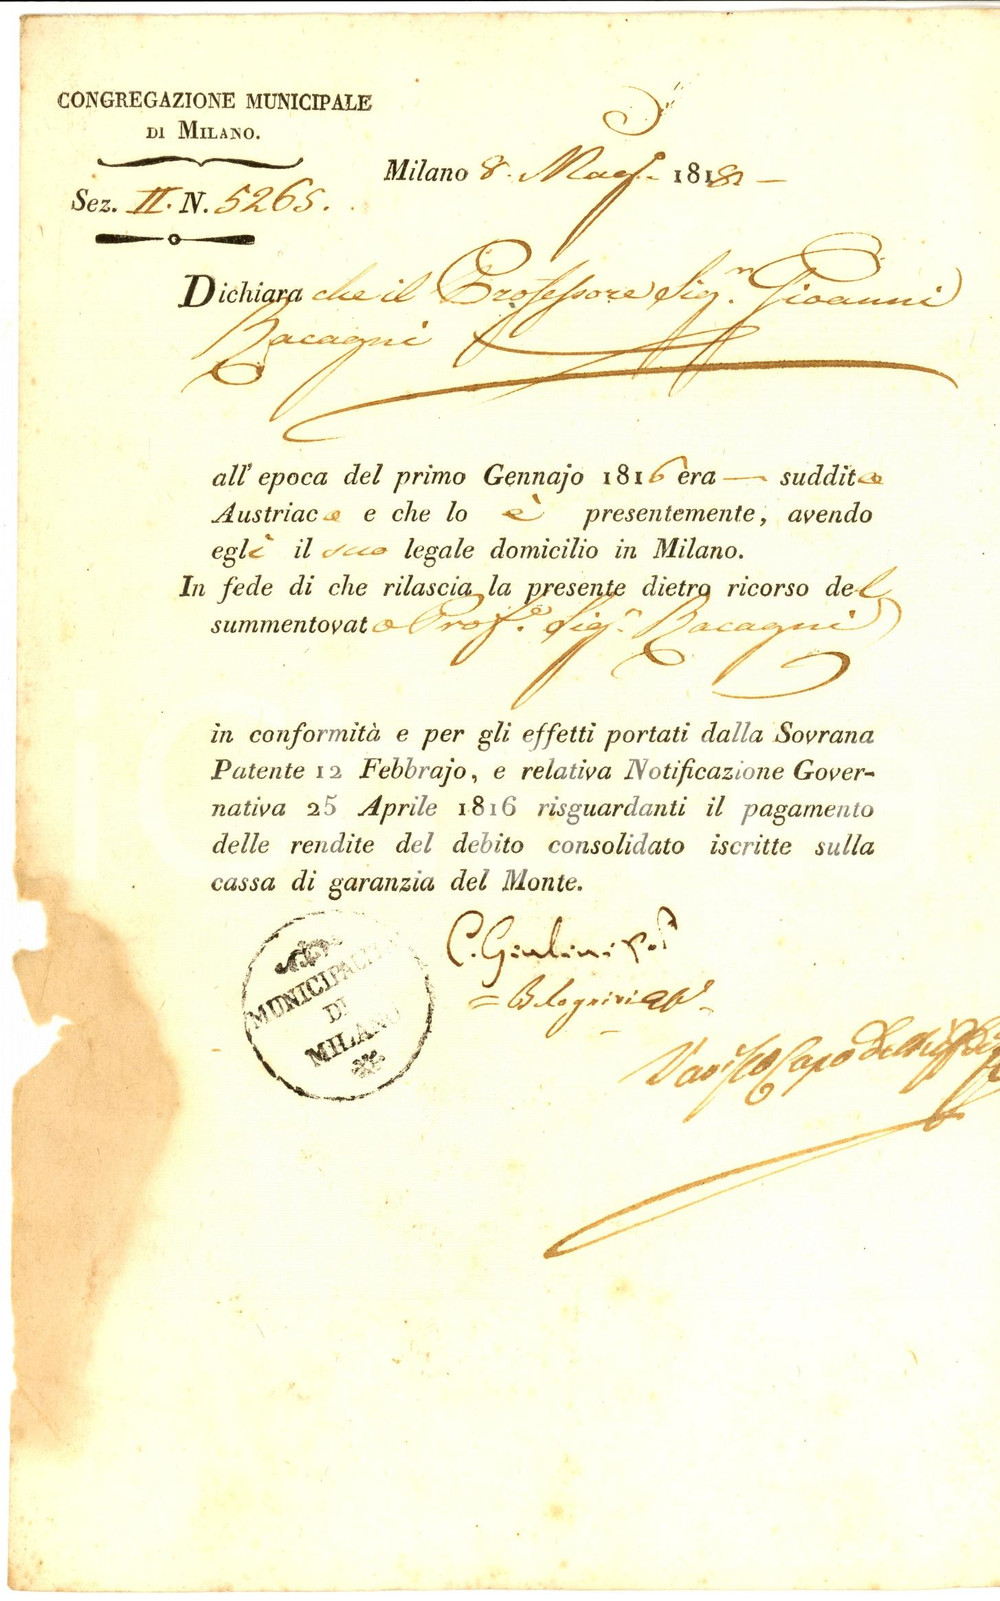 CONGREGAZIONE MUNICIPALE
DI MILANO.
Milano 8. Magg.º 1818
Sez. II. N. 5265.
Dichiara che il Professore Sig.ⁿ Gioanni
Racagni
all' epoca del primo Gennajo 1816 era — suddito
Austriaco e che lo è presentemente, avendo
egli il suo legale domicilio in Milano.
In fede di che rilascia la presente dietro ricorso del
summentovato Prof.e Sig.ⁿ Racagni
in conformità e per gli effetti portati dalla Sovrana
Patente 12 Febbrajo, e relativa Notificazione Gover-
nativa 25 Aprile 1816 risguardanti il pagamento
delle rendite del debito consolidato iscritte sulla
cassa di garanzia del Monte.
C. Giulini
MUNICIPALITA
DI
MILANO
Capo